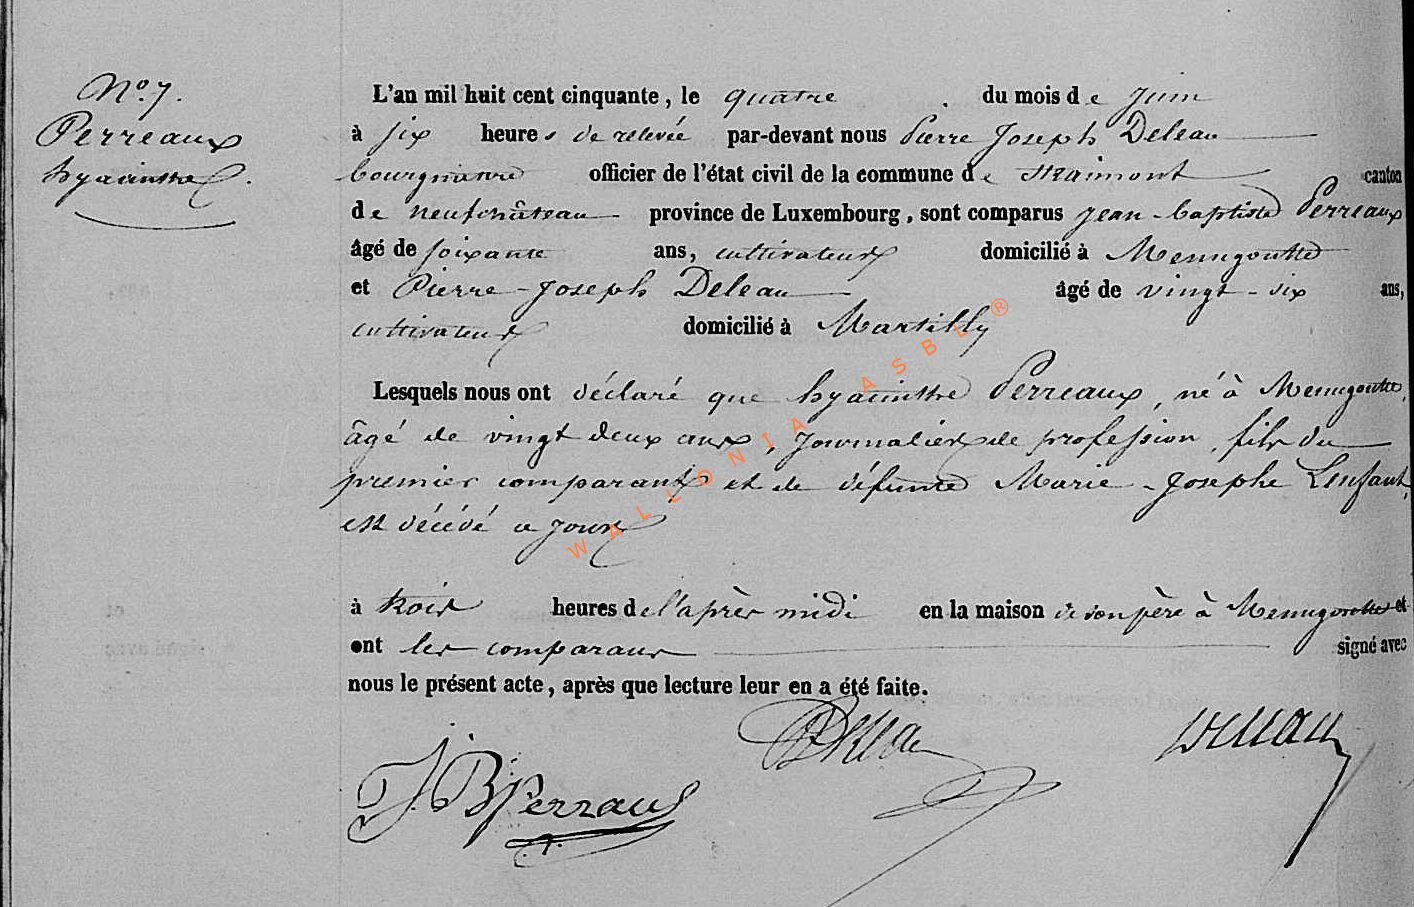 No. 7.
Perreaux
hyacinthe.
L'an mil huit cent cinquante, le quatre du mois de juin
à six heures de relevée par-devant nous Pierre Joseph Deleau
bourgmestre officier de l'état civil de la commune de Straimont canton
de neufchâteau province de Luxembourg, sont comparus jean-baptiste Perreaux
âgé de soixante ans, cultivateur domicilié à Menugoutte
et Pierre-Joseph Deleau âgé de vingt-six ans,
cultivateur domicilié à Martilly
Lesquels nous ont déclaré que hyacinthe Perreaux, né à Menugoutte,
âgé de vingt deux ans, journalier de profession, fils du
premier comparant et de défunte Marie-Josephe Lenfant,
est décédé ce jour
à trois heures de l'après midi en la maison de son père à Menugoutte et
ont les comparans signé avec
nous le présent acte, après que lecture leur en a été faite.
J. B Perraux
Deleau
WALLONIA ASBL ®